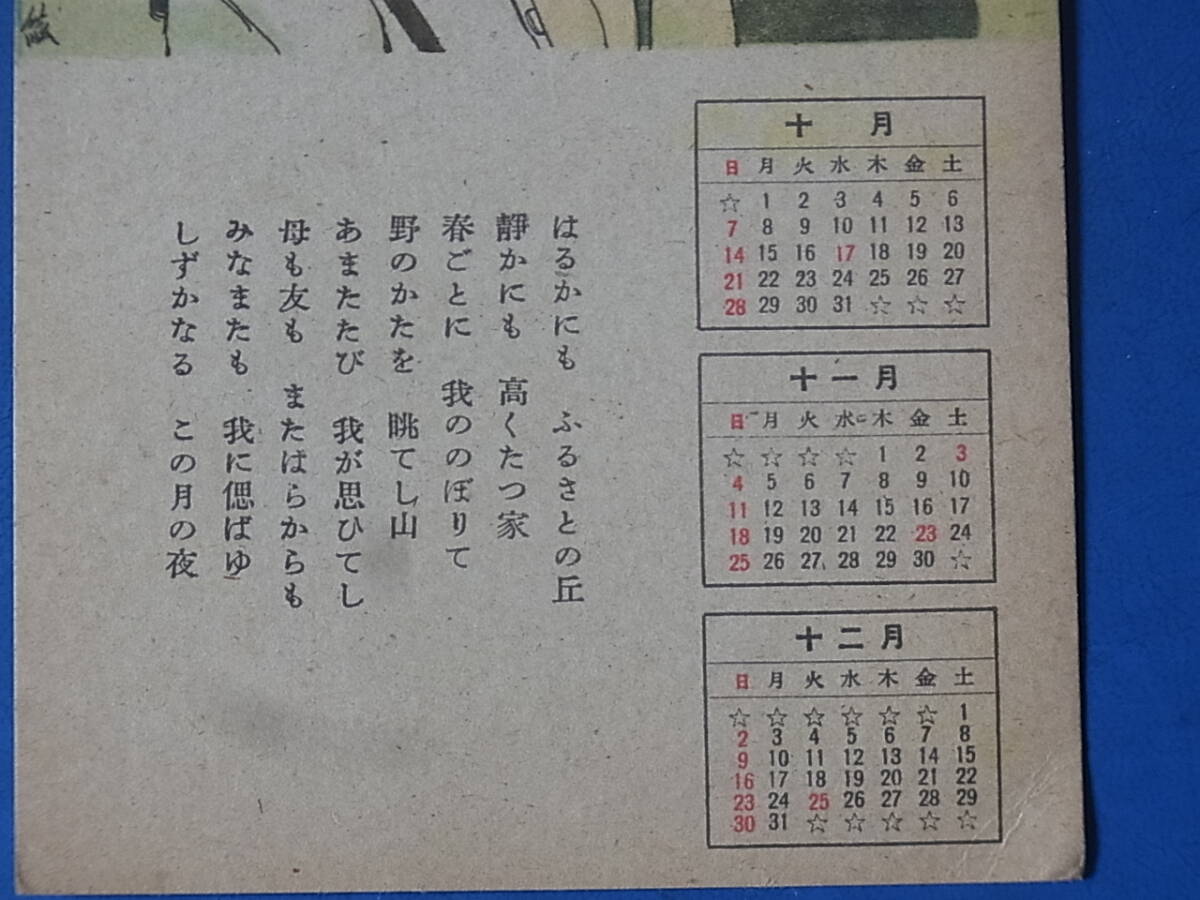 はるかにも　ふるさとの丘
靜かにも　高くたつ家
春ごとに　我ののぼりて
野のかたを　眺てし山
あまたたび　我が思ひてし
母も友も　またはらからも
みなまたも　我に偲ばゆ
しずかなる　この月の夜
十月
日 月 火 水 木 金 土
☆ 1 2 3 4 5 6
7 8 9 10 11 12 13
14 15 16 17 18 19 20
21 22 23 24 25 26 27
28 29 30 31 ☆ ☆ ☆
十一月
日 月 火 水 木 金 土
☆ ☆ ☆ ☆ 1 2 3
4 5 6 7 8 9 10
11 12 13 14 15 16 17
18 19 20 21 22 23 24
25 26 27 28 29 30 ☆
十二月
日 月 火 水 木 金 土
☆ ☆ ☆ ☆ ☆ ☆ 1
2 3 4 5 6 7 8
9 10 11 12 13 14 15
16 17 18 19 20 21 22
23 24 25 26 27 28 29
30 31 ☆ ☆ ☆ ☆ ☆